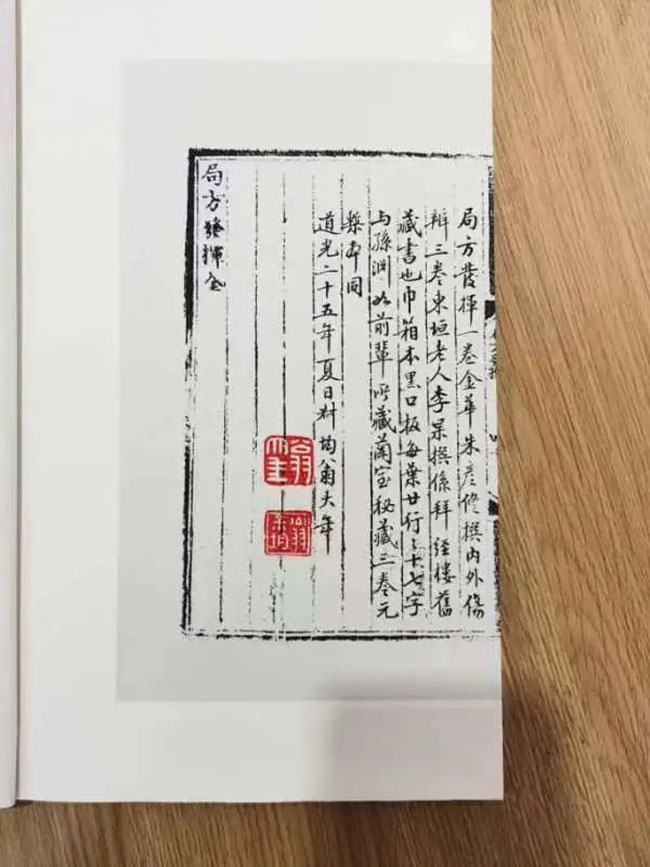 局方發揮一卷金華朱彥修撰内外傷
辯三卷東垣老人李杲撰係拜經樓舊
藏書也巾箱本黑口板每葉廿行々十七字
与孫淵如前輩所藏蘭室秘藏三卷元
槧本同
道光二十五年夏日叔均翁大年
翁大年
翁叔均
局方發揮全